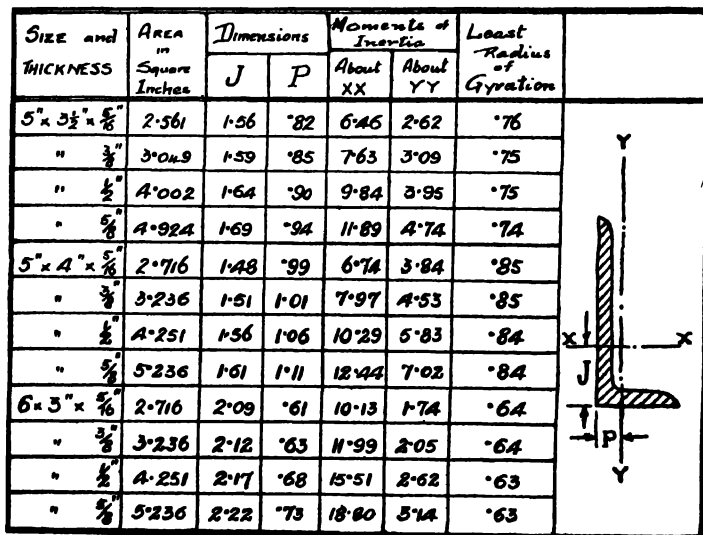 SIZE and THICKNESS AREA in Square Inches Dimensions Moments of Inertia Least Radius of Gyration
J P About XX About YY
5" x 3 1/2" x 5/16" 2·561 1·56 ·82 6·46 2·62 ·76
" 3/8" 3·049 1·59 ·85 7·63 3·09 ·75
" 1/2" 4·002 1·64 ·90 9·84 3·95 ·75
" 5/8" 4·924 1·69 ·94 11·89 4·74 ·74
5" x 4" x 5/16" 2·716 1·48 ·99 6·74 3·84 ·85
" 3/8" 3·236 1·51 1·01 7·97 4·53 ·85
" 1/2" 4·251 1·56 1·06 10·29 5·83 ·84
" 5/8" 5·236 1·61 1·11 12·44 7·02 ·84
6 x 3" x 5/16" 2·716 2·09 ·61 10·13 1·74 ·64
" 3/8" 3·236 2·12 ·63 11·99 2·05 ·64
" 1/2" 4·251 2·17 ·68 15·51 2·62 ·63
" 5/8" 5·236 2·22 ·73 18·80 3·14 ·63
Y
X X
J
P
Y